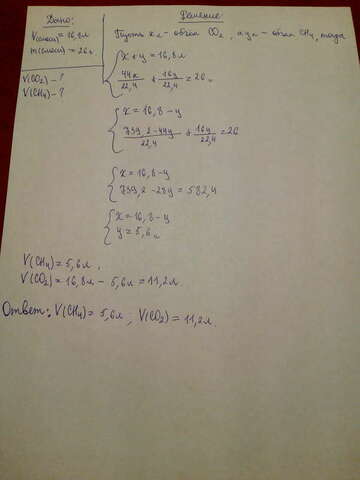 Дано:
V(смеси)=16,8л
m(смеси)=26г
V(CO2)-?
V(CH4)-?
Решение
Пусть x л - объем CO2, а y л - объем CH4, тогда
x+y=16,8л
44x/22,4 + 16y/22,4 = 26
x=16,8-y
739,2-44y/22,4 + 16y/22,4 = 26
x=16,8-y
739,2-28y=582,4
x=16,8-y
y=5,6л
V(CH4)=5,6л,
V(CO2)=16,8л - 5,6л=11,2л.
Ответ: V(CH4)=5,6л; V(CO2)=11,2л.